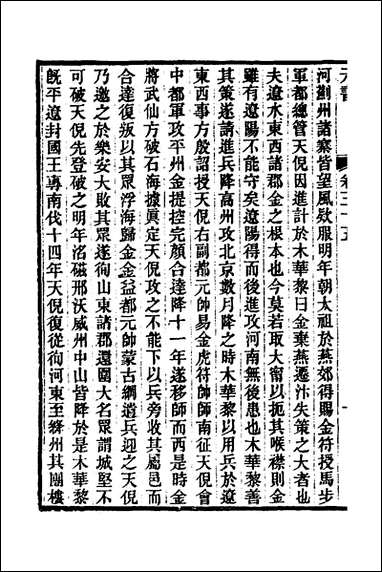 元書 卷三十五 一
河劉州諸寨皆望風欵服明年朝太祖於燕郊得賜金符授馬步
軍都總管天倪因進計於木華黎曰金棄燕遷汴失策之大者也
夫遼水東西諸郡金之根本也今莫若取大甯以扼其喉襟則金
雖有遼陽不能守矣遼陽得而後進攻河南無後患也木華黎善
其策遂請進兵降高州攻北京數月降之時木華黎以用兵於遼
東西事方殷詔授天倪右副都元帥易金虎符帥師南征天倪會
中都軍攻平州金提控完顏合達降十一年遂移師而西是時金
將武仙方破石海據眞定天倪攻之不能下以兵旁收其屬邑而
合達復叛以其眾浮海歸金金益都元帥蒙古綱遣兵迎之天倪
乃邀之於樂安大敗其眾遂徇山東諸郡還圍大名眾謂城堅不
可破天倪先登破之明年洺磁邢沃威州中山皆降於是木華黎
旣平遼封國王專南伐十四年天倪復從徇河東至絳州其團樓